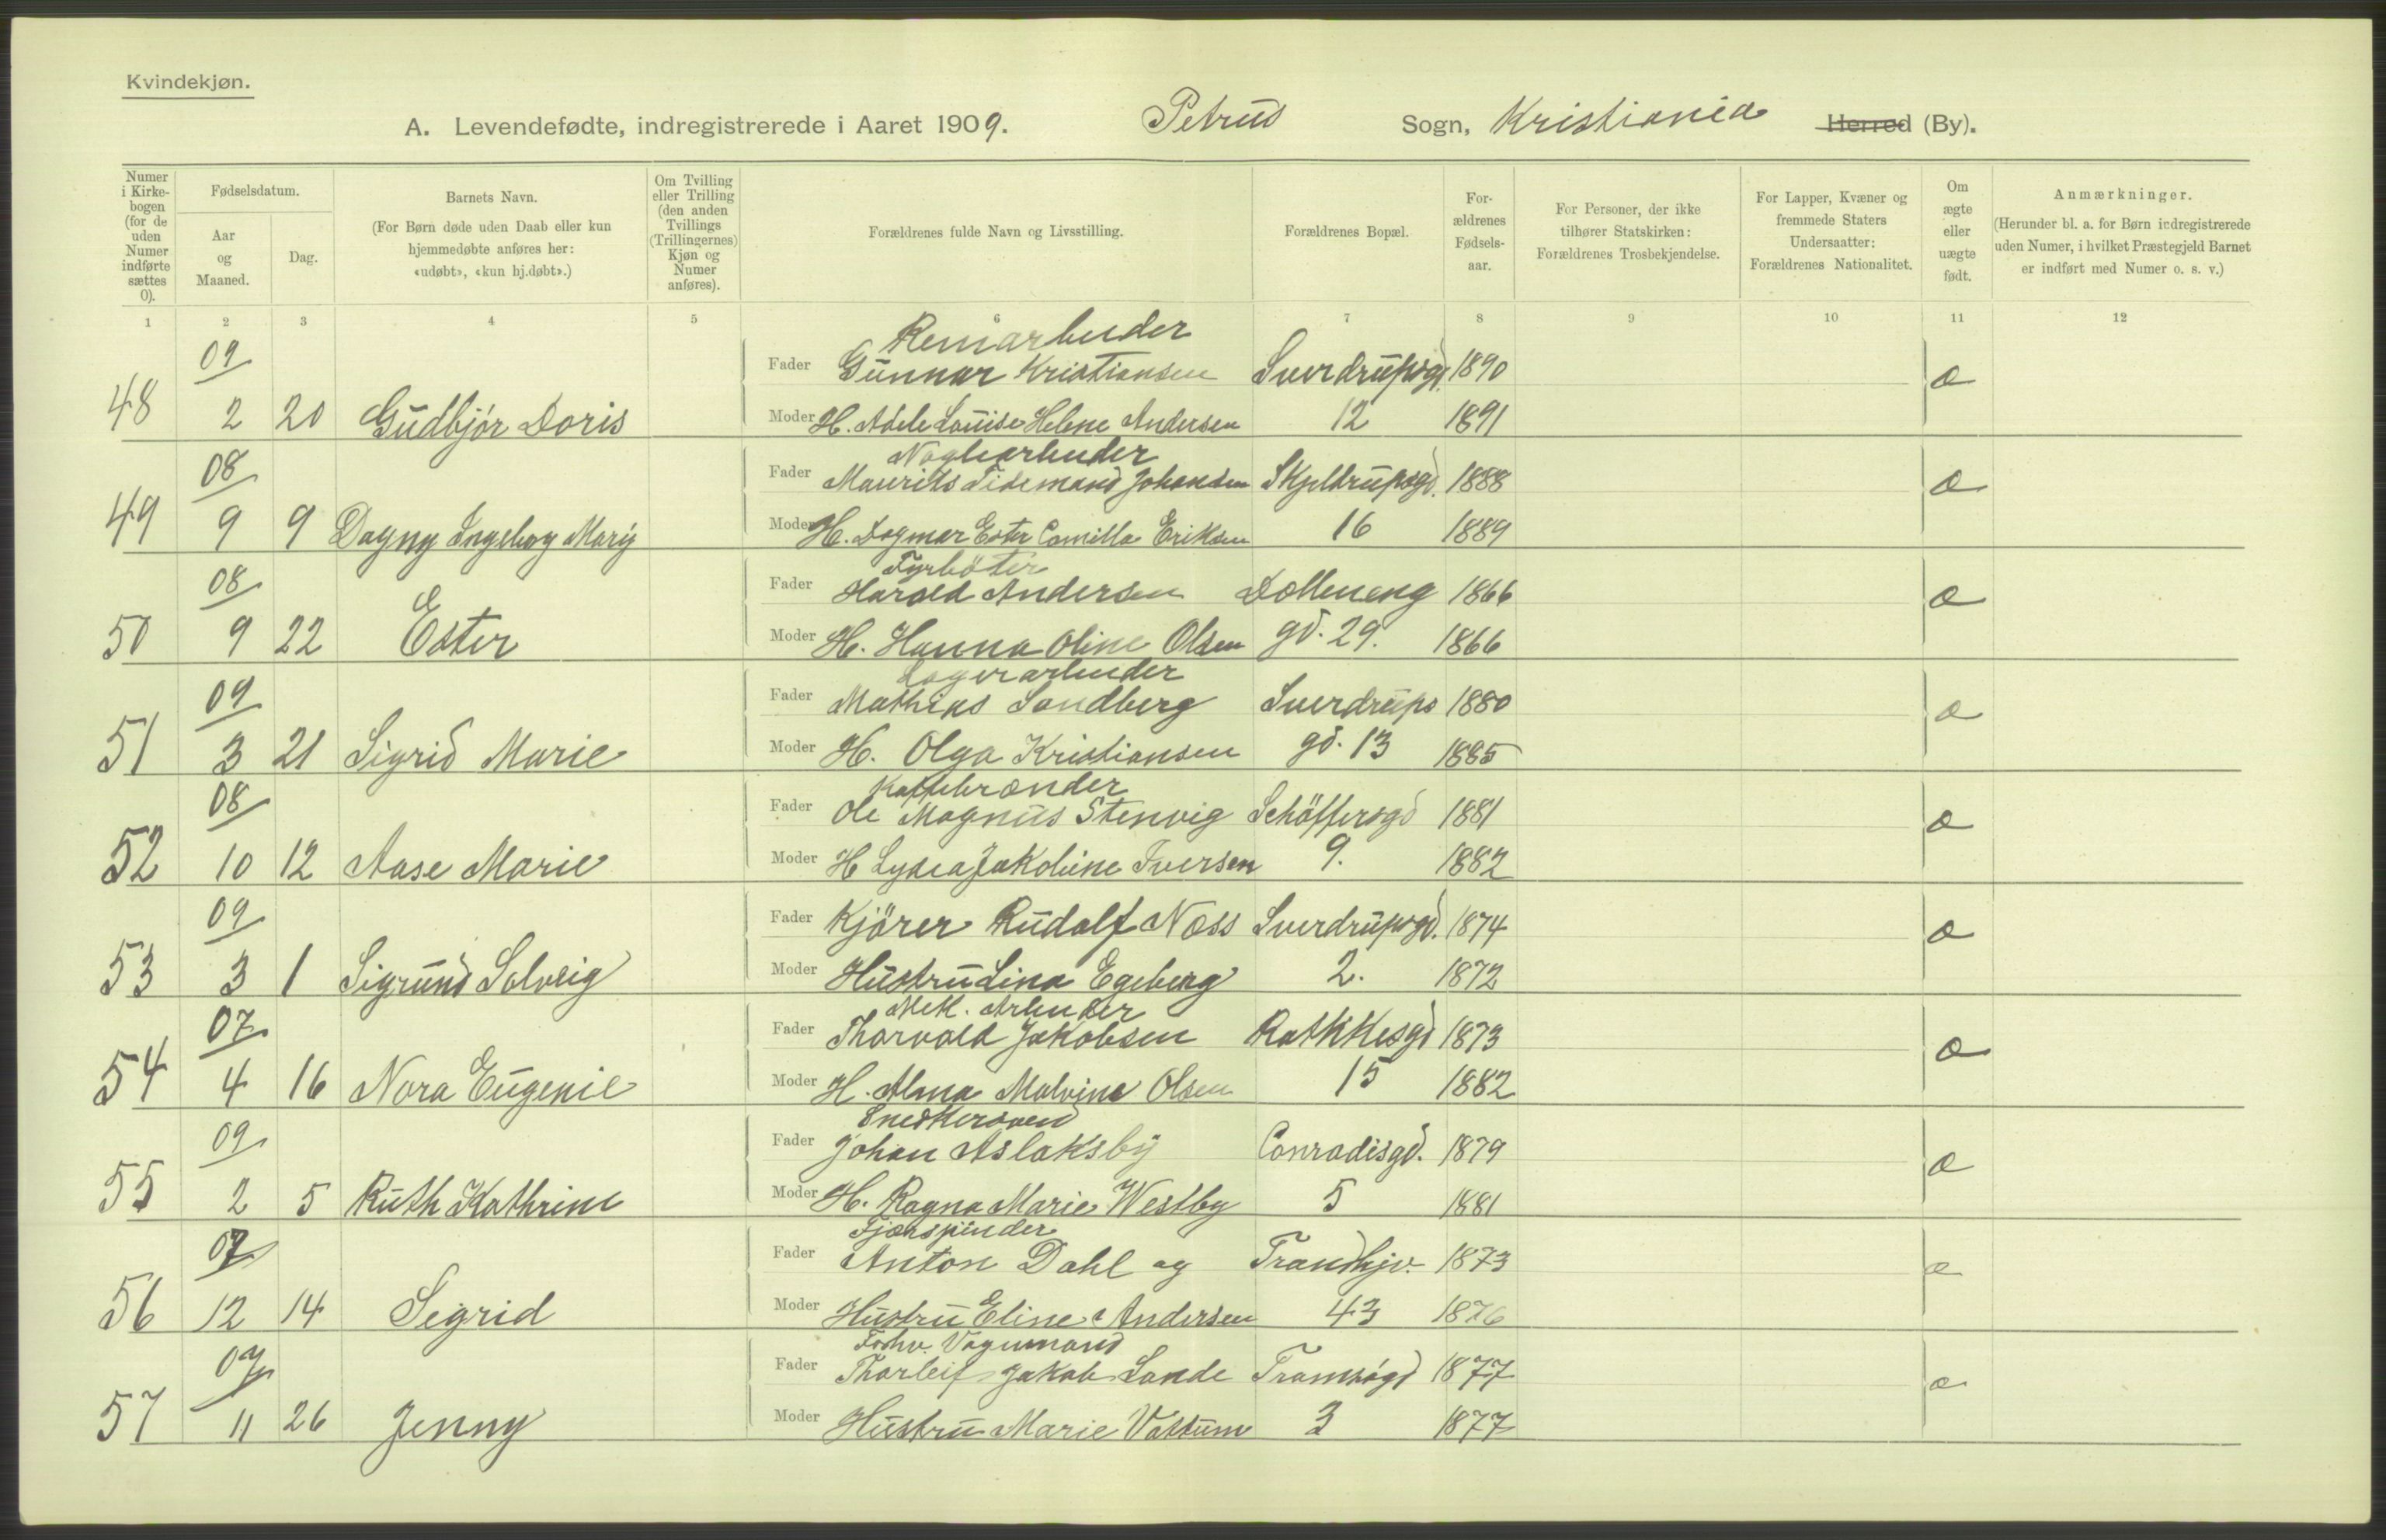 Kvindekjøn.
A. Levendefødte, indregistrerede i Aaret 1909. Petrus Sogn, Kristiania Herred (By).
Numer i Kirkebogen (for de uden Numer indførte sættes 0).
Fødselsdatum.
Aar og Maaned.
Dag.
Barnets Navn.
(For Børn døde uden Daab eller kun hjemmedøbte anføres her: «udøbt», «kun hj.døbt».)
Om Tvilling eller Trilling (den anden Tvillings (Trillingernes) Kjøn og Numer anføres).
Forældrenes fulde Navn og Livsstilling.
Forældrenes Bopæl.
Forældrenes Fødselsaar.
For Personer, der ikke tilhører Statskirken: Forældrenes Trosbekjendelse.
For Lapper, Kvæner og fremmede Staters Undersaatter: Forældrenes Nationalitet.
Om ægte eller uægte født.
Anmærkninger.
(Herunder bl. a. for Børn indregistrerede uden Numer, i hvilket Præstegjeld Barnet er indført med Numer o. s. v.)
1 2 3 4 5 6 7 8 9 10 11 12
09 Remarbeider
Fader Gunnar Kristiansen Sverdrupsgd. 1890 æ
48 2 20 Gudbjór Doris Moder H. Adele Louise Helene Andersen 12 1891
08 Naglearbeider
Fader Maurits Tidemand Johansen Skjeldrupsgd. 1888 æ
49 9 9 Dagny Ingeborg Mary Moder H. Dagmar Ester Camilla Eriksen 16 1889
08 Fyrböter
Fader Harald Andersen Dælleneng 1866 æ
50 9 22 Ester Moder H. Hanna Oline Olsen gd. 29. 1866
09 Lagerarbeider
Fader Mathias Sandberg Sverdrups 1880 æ
51 3 21 Sigrid Marie Moder H. Olga Kristiansen gd. 13 1885
08 Kaffebrænder
Fader Ole Magnus Stenvig Schöffersgd 1881 æ
52 10 12 Aase Marie Moder H Lydea Jakobine Iversen 9. 1882
09
Fader Kjörer Rudolf Næss Sverdrupsgd. 1874 æ
53 3 1 Sigrund Solveig Moder Hustru Lina Egeberg 2. 1872
07 Mek. Arbeider
Fader Thorvald Jakobsen Rathkesgd 1873 æ
54 4 16 Nora Eugenie Moder H. Alma Malvina Olsen 15 1882
09 Snedkersvend
Fader Johan Aslaksby Conradisgd. 1879 æ
55 2 5 Ruth Kathrine Moder H. Ragna Marie Westby 5 1881
07
Fader Anton Dahl og Trondhjv. 1873 æ
56 12 14 Sigrid Moder Hustru Eline Andersen 43 1876
07 Forhv. Vognmand
Fader Thorleif Jakob Lande Tromsógd 1877 æ
57 11 26 Jenny Moder Hustru Marie Vattum 3 1877